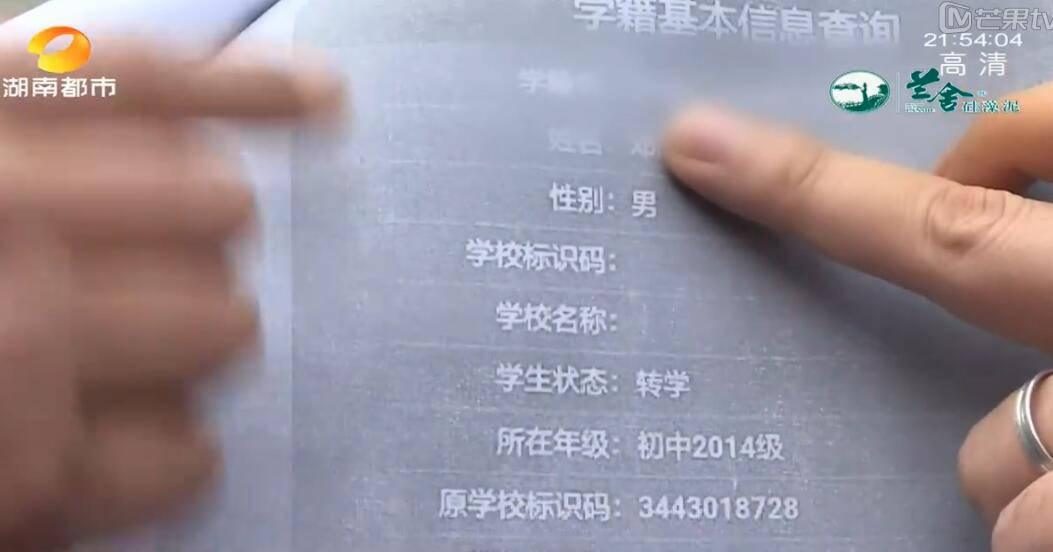 学籍基本信息查询
芒果tv
21:54:04
高清
湖南都市
兰舍
硅藻泥
学籍
姓名: 邓
性别: 男
学校标识码:
学校名称:
学生状态: 转学
所在年级: 初中2014级
原学校标识码: 3443018728